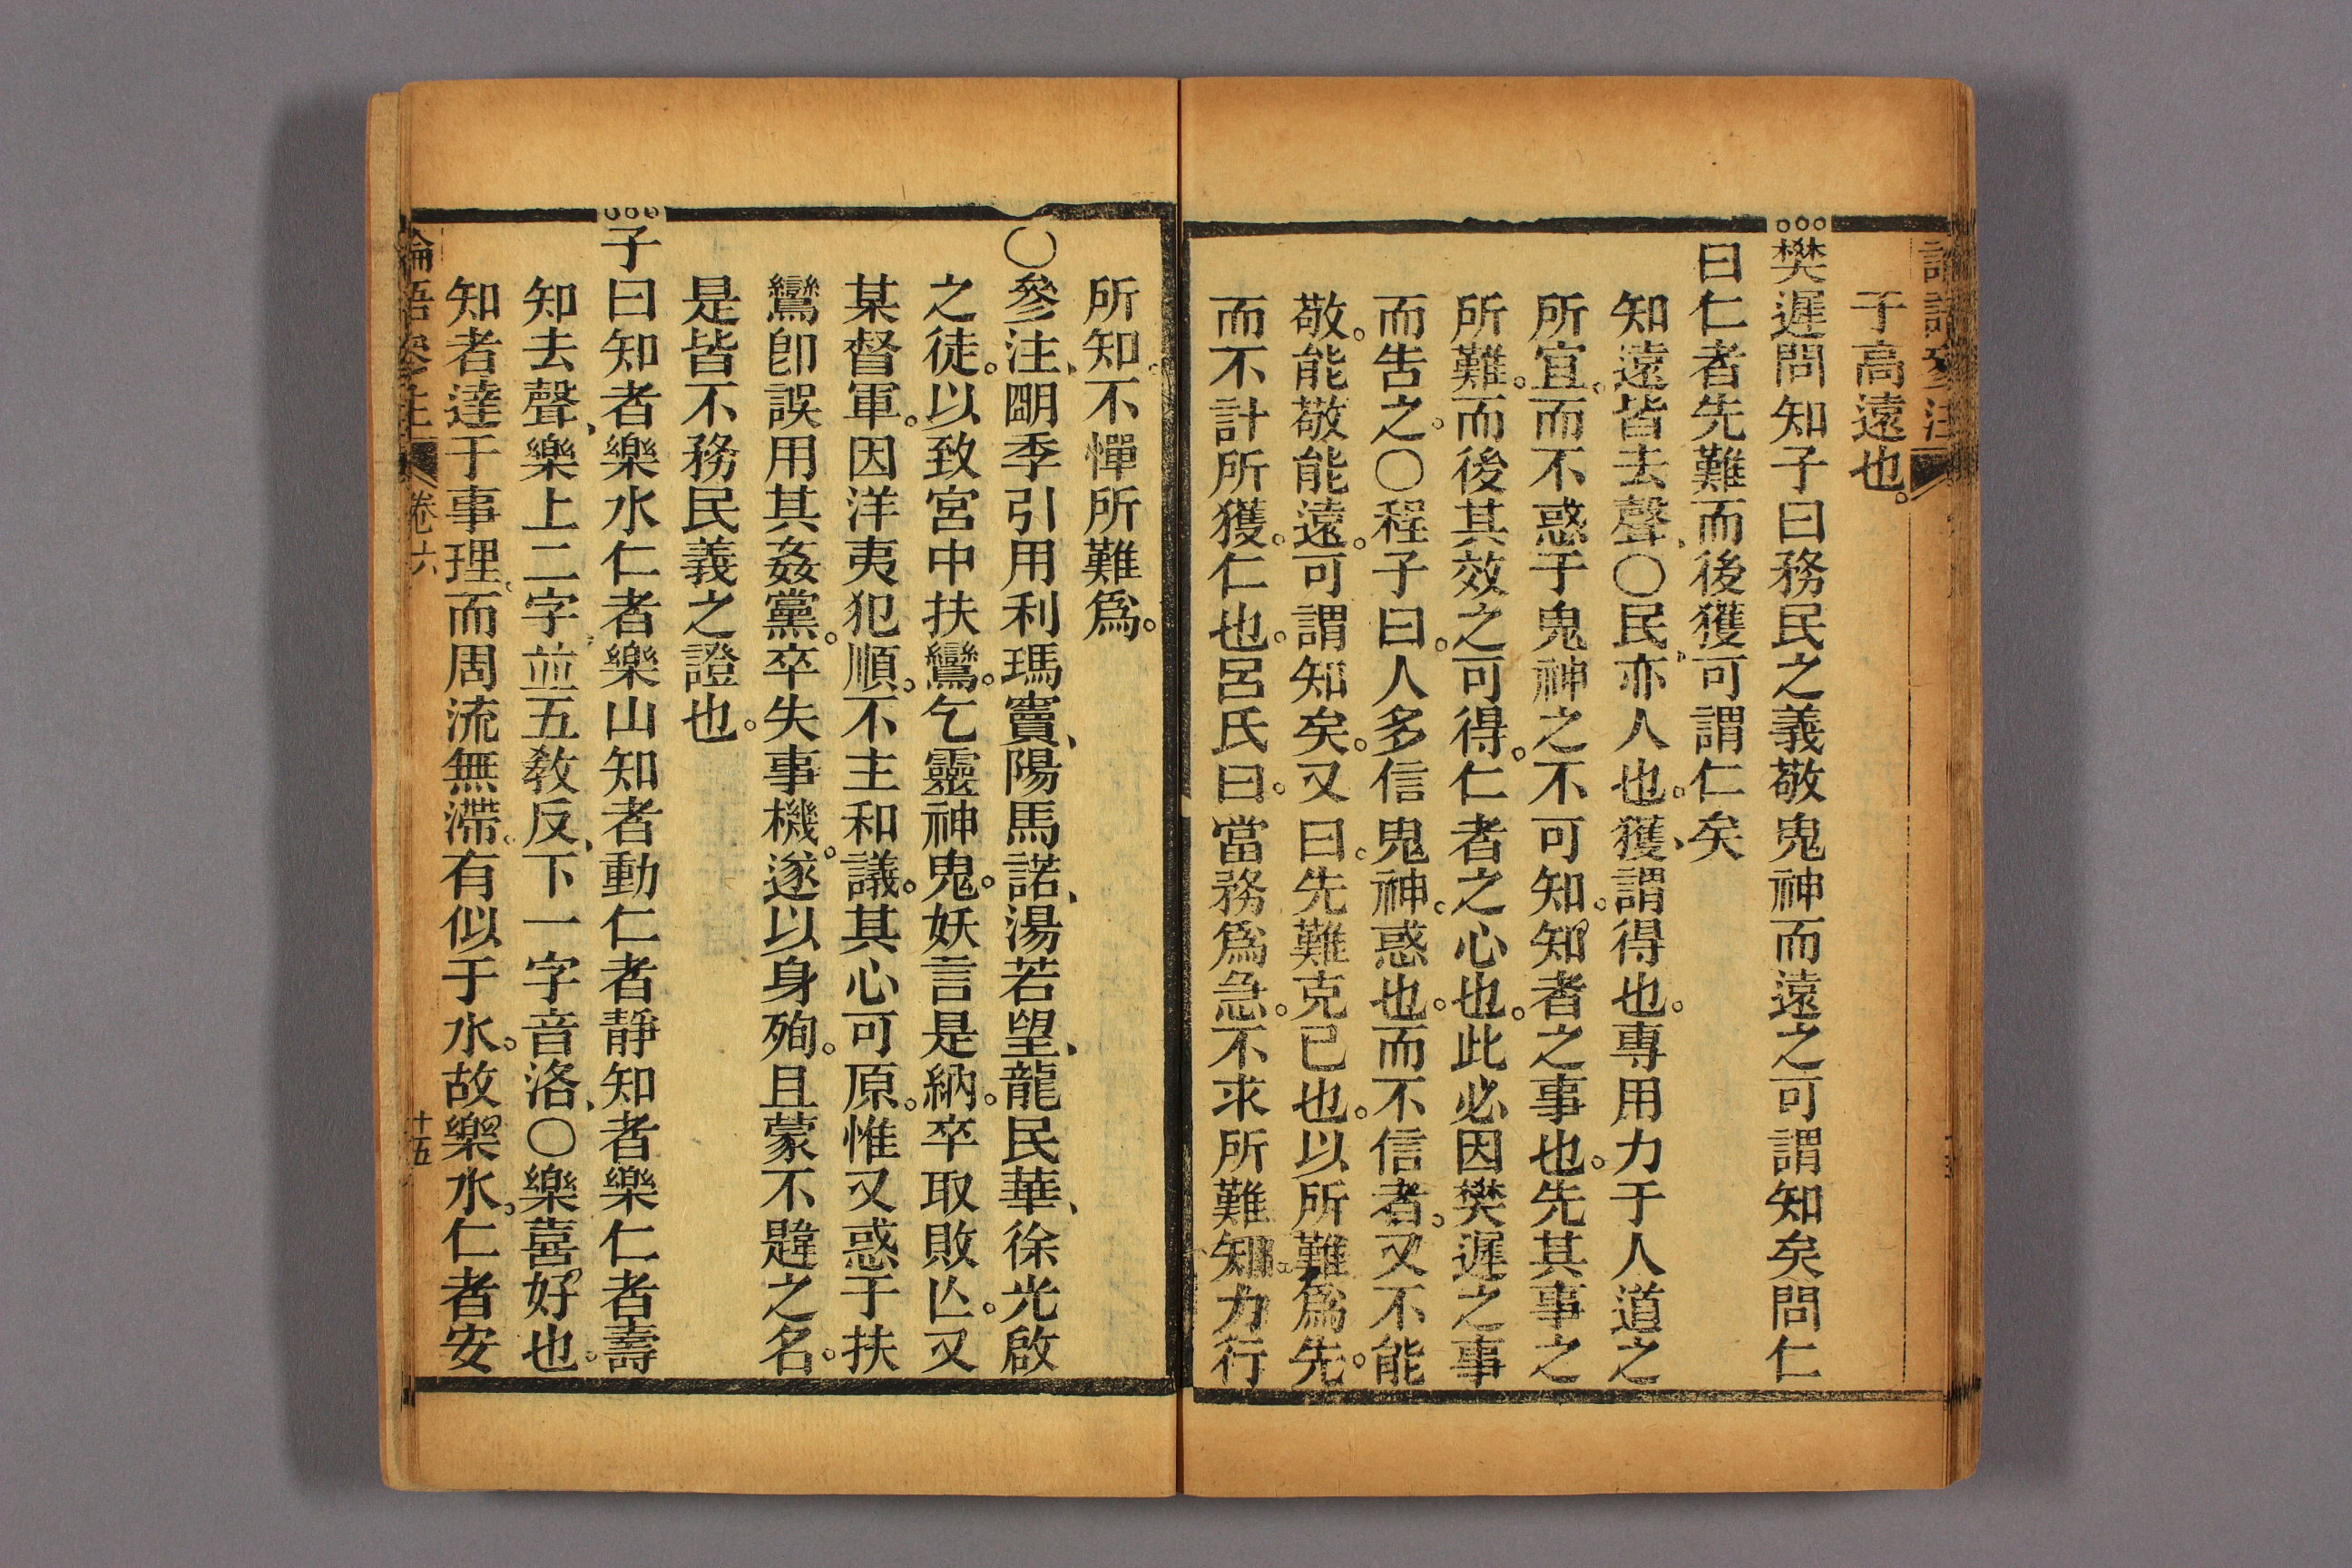 于高遠也。
樊遲問知子曰務民之義敬鬼神而遠之可謂知矣問仁
曰仁者先難而後獲可謂仁矣
知遠皆去聲、〇民、亦人也。獲、謂得也。專用力于人道之
所宜、而不惑于鬼神之不可知。知者之事也。先其事之
所難。而後其效之可得。仁者之心也。此必因樊遲之事
而告之。〇程子曰。人多信鬼神。惑也。而不信者。又不能
敬。能敬能遠。可謂知矣。又曰。先難克已也。以所難爲先。
而不計所獲。仁也。呂氏曰。當務爲急。不求所難知。力行
所知。不憚所難爲。
〇參注、朙季引用利瑪竇、陽馬諾、湯若望、龍民華、徐光啟
之徒。以致宮中扶鸞。乞靈神鬼。妖言是納。卒取敗亾。又
某督軍。因洋夷犯順。不主和議。其心可原。惟又惑于扶
鸞卽誤用其姦黨。卒失事機。遂以身殉。且蒙不韙之名。
是皆不務民義之證也。
子曰知者樂水仁者樂山知者動仁者靜知者樂仁者壽
知去聲、樂上二字、並五敎反、下一字音洛、〇樂喜好也。
知者達于事理。而周流無滯。有似于水。故樂水。仁者安
論語參注 卷六 十五